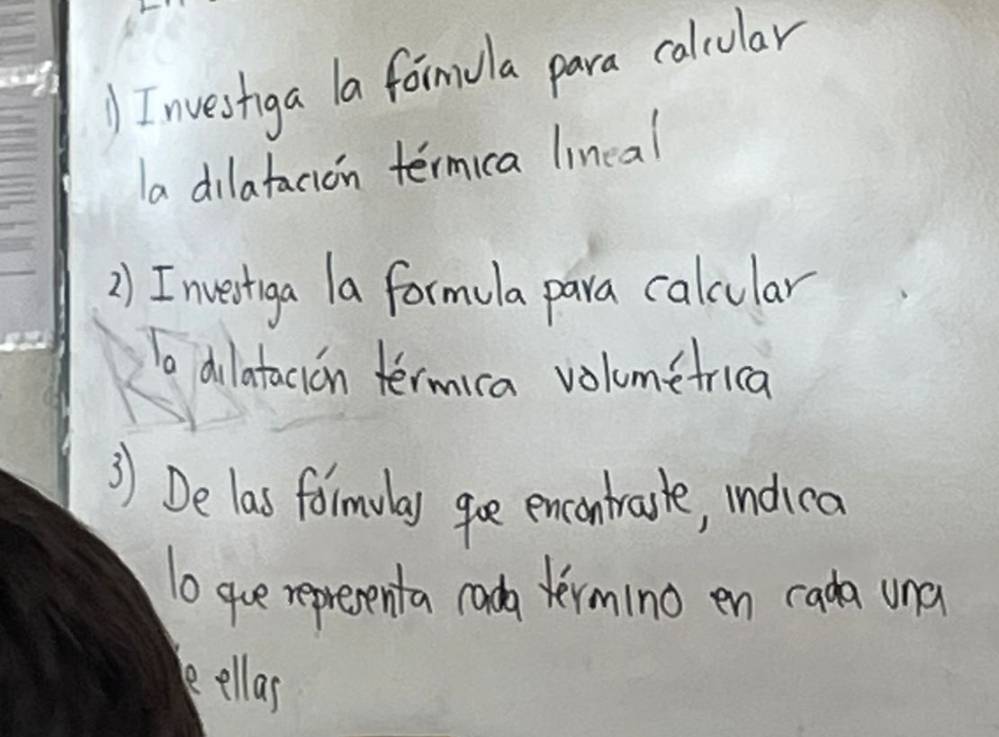 1) Investiga la fórmula para calcular
la dilatación térmica lineal
2) Investiga la formula para calcular
la dilatación térmica volumétrica
3) De las fórmulas que encontraste, indica
lo que representa cada término en cada una
e ellas